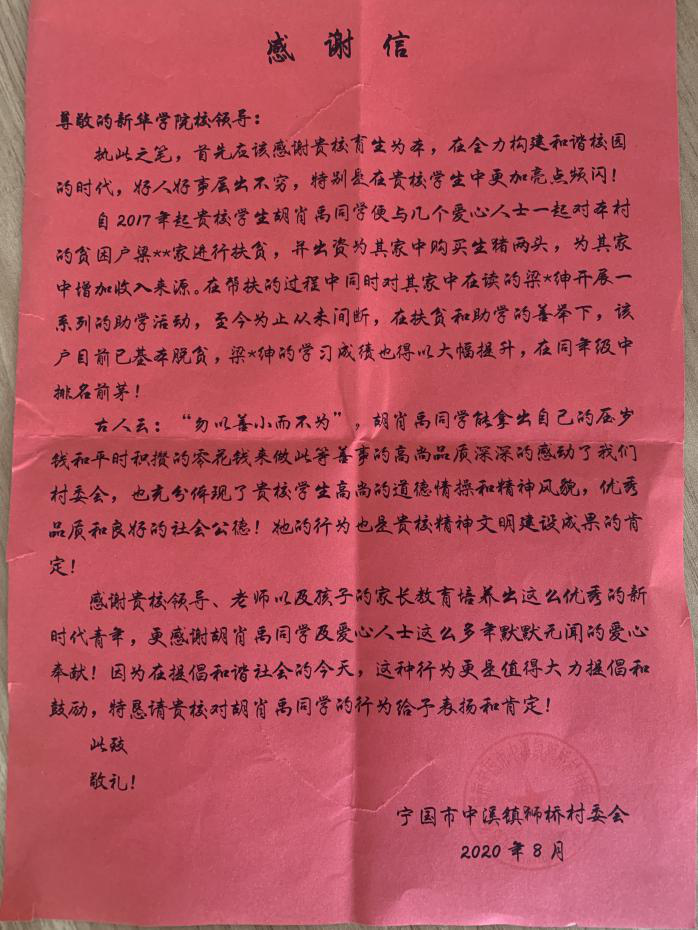 感谢信
尊敬的新华学院校领导：
执此之笔，首先在该感谢贵校育生为本，在全力构建和谐校园
的时代，好人好事层出不穷，特别是在贵校学生中更加亮点频闪！
自2017年起贵校学生胡肖禹同学便与几个爱心人士一起对本村
的贫困户梁**家进行扶贫，并出资为其家中购买生猪两头，为其家
中增加收入来源。在帮扶的过程中同时对其家中在读的梁*绅开展一
系列的助学活动，至今为止从未间断，在扶贫和助学的善举下，该
户目前已基本脱贫，梁*绅的学习成绩也得以大幅提升，在同年级中
排名前茅！
古人云：“勿以善小而不为”，胡肖禹同学能拿出自己的压岁
钱和平时积攒的零花钱来做此等善事的高尚品质深深的感动了我们
村委会，也充分体现了贵校学生高尚的道德情操和精神风貌，优秀
品质和良好的社会公德！她的行为也是贵校精神文明建设成果的肯
定！
感谢贵校领导、老师以及孩子的家长教育培养出这么优秀的新
时代青年，更感谢胡肖禹同学及爱心人士这么多年默默无闻的爱心
奉献！因为在提倡和谐社会的今天，这种行为更是值得大力提倡和
鼓励，特恳请贵校对胡肖禹同学的行为给予表扬和肯定！
此致
敬礼！
宁国市中溪镇狮桥村委会
2020年8月